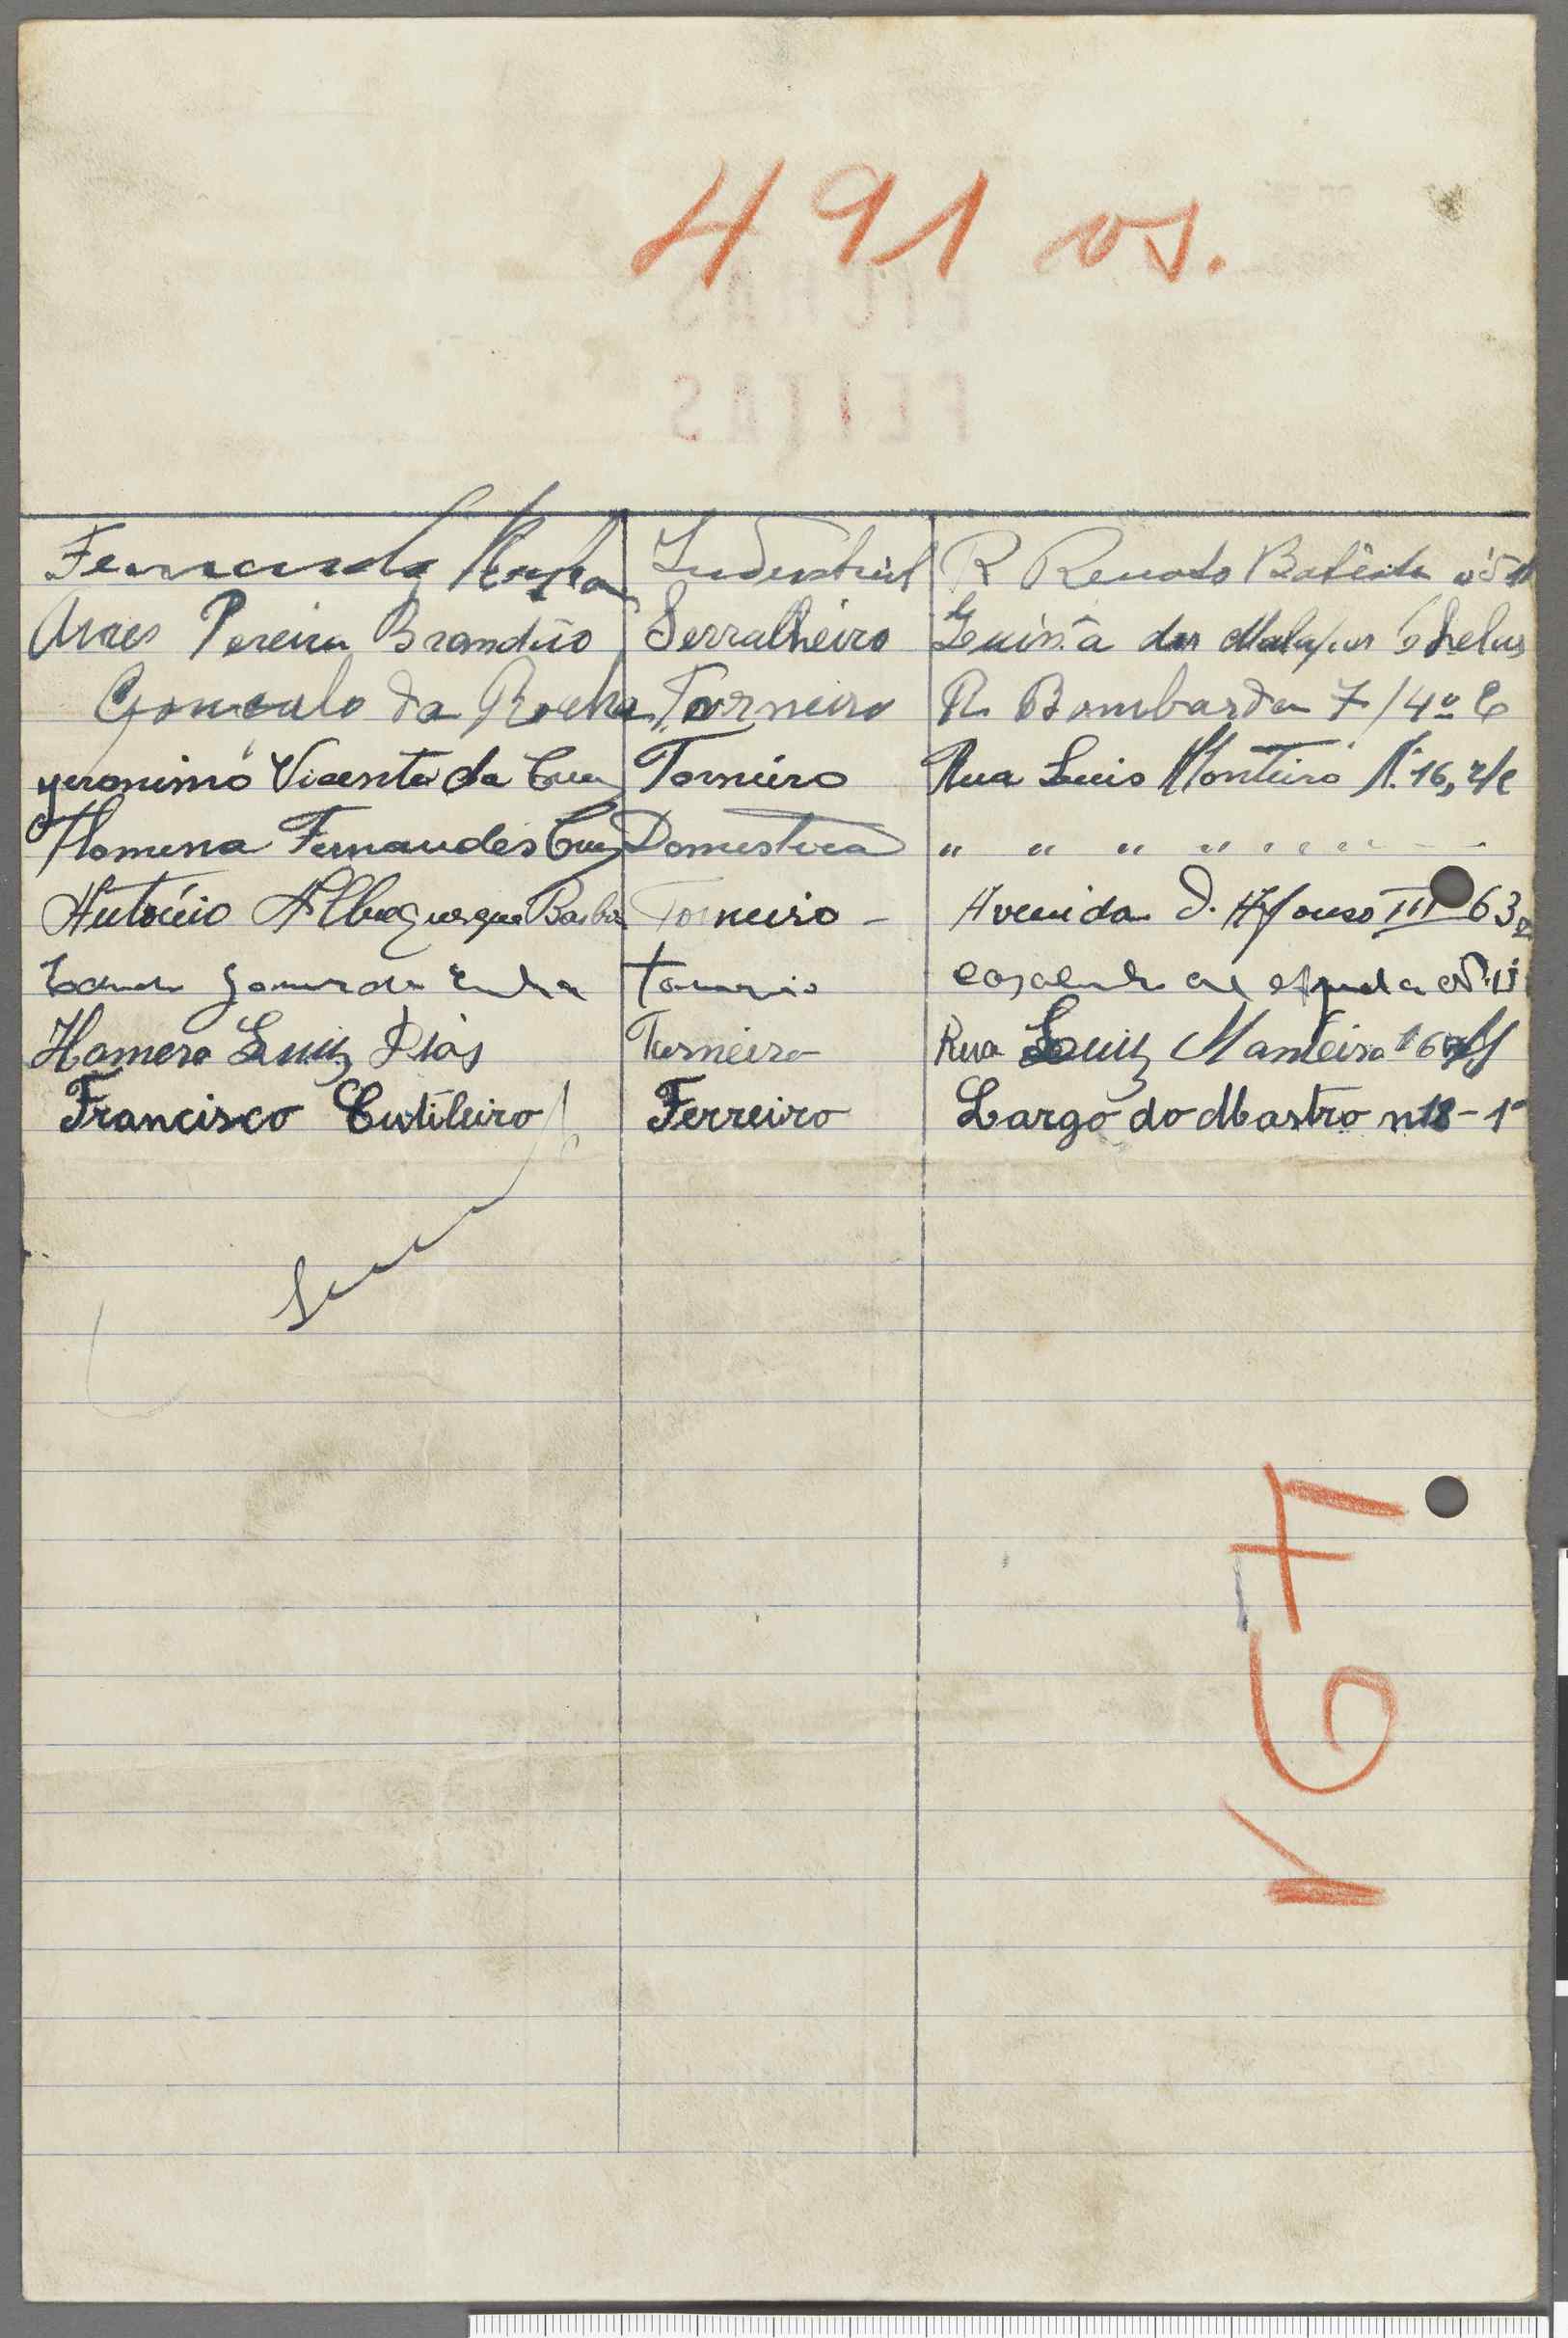 491 vs.
FICHAS
FEITAS
Fernando Industrial R Renato Batista
Aires Pereira Brandão Serralheiro Quinta dos Chelas
Goncalo da Rocha Torneiro R. Bombarda 7/4º E
Jeronimo Vicente da Cruz Torneiro Rua Luis Monteiro N. 16, r/c
Filomena Fernandes Cruz Domestica " " " " " " " "
António Albuquerque Barbosa Torneiro - Avenida D. Afonso III 63
Homero Luiz Dias Torneiro Rua Luiz Monteiro 16
Francisco Cutileiro Ferreiro Largo do Mastro n 18 - 1º
K67